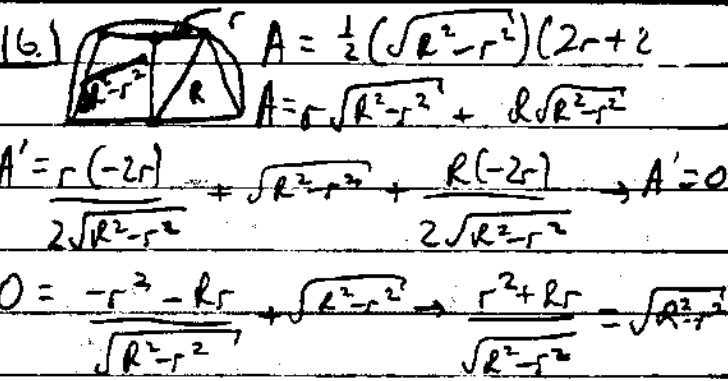 16.) r A = ½(√(R²-r²))(2r+2
√(R²-r²) R A = r√(R²-r²) + R√(R²-r²)
A' = r(-2r)/(2√(R²-r²)) + √(R²-r²) + R(-2r)/(2√(R²-r²)) → A'=0
0 = (-r² - Rr)/√(R²-r²) + √(R²-r²) → (r²+Rr)/√(R²-r²) = √(R²-r²)